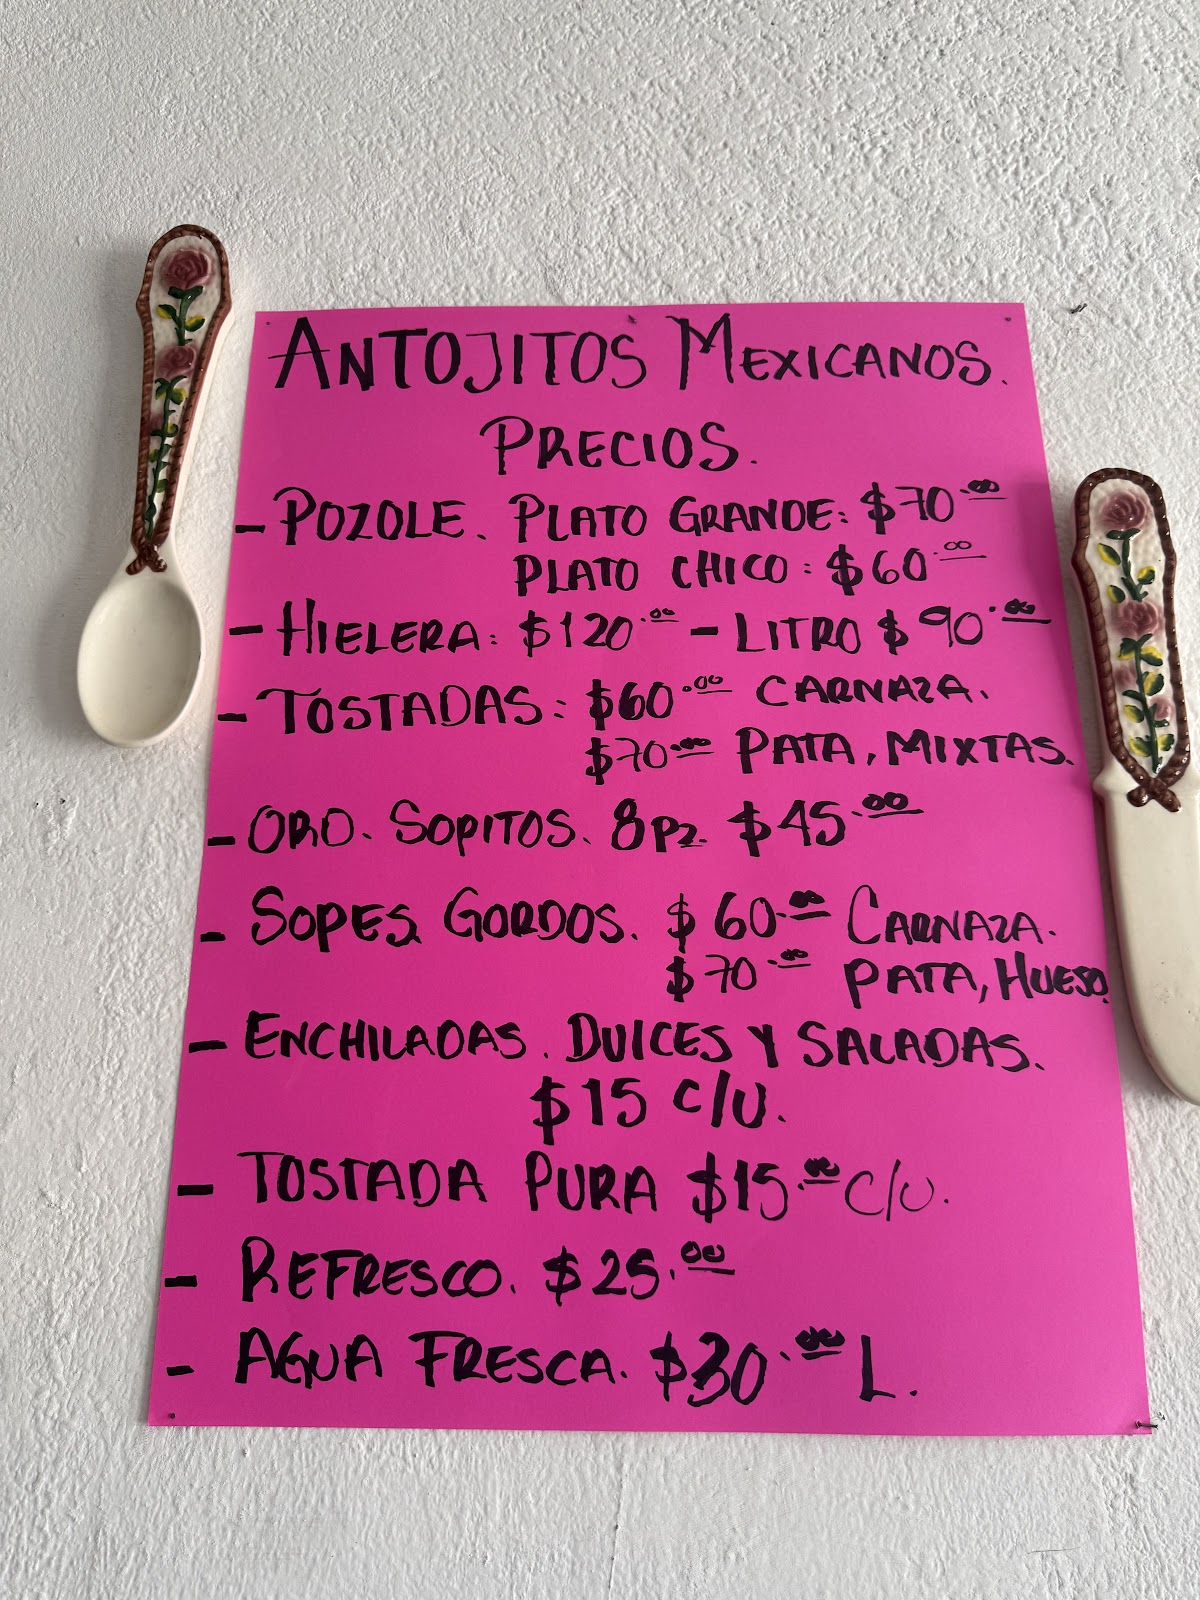 ANTOJITOS MEXICANOS.
PRECIOS.
- POZOLE. PLATO GRANDE: $70.00
PLATO CHICO: $60.00
- HIELERA: $120.00 - LITRO $90.00
- TOSTADAS: $60.00 CARNAZA.
$70.00 PATA, MIXTAS.
- ORD. SOPITOS. 8Pz. $45.00
- SOPES GORDOS. $60.00 CARNAZA.
$70.00 PATA, HUESO.
- ENCHILADAS. DULCES Y SALADAS.
$15 C/U.
- TOSTADA PURA $15.00 C/U.
- REFRESCO. $25.00
- AGUA FRESCA. $30.00 L.